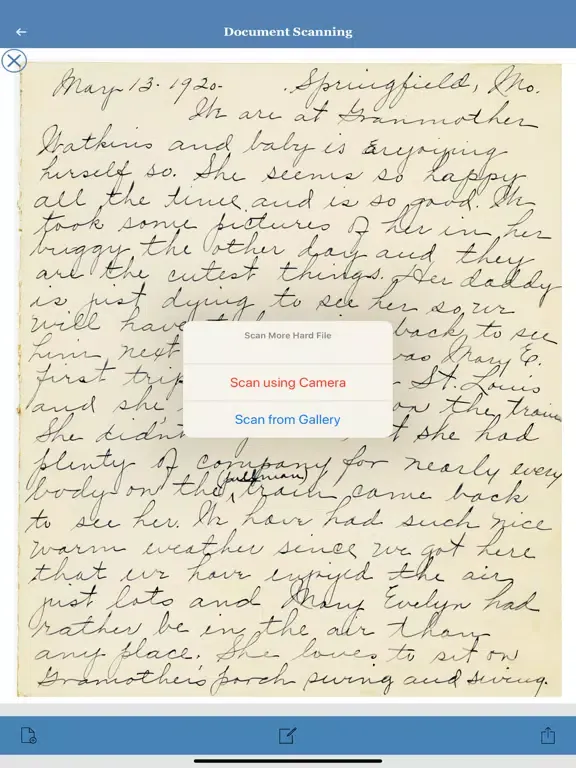 Document Scanning
May 13 - 1920. Springfield, Mo.
We are at Granmother
Watkins and baby is enjoying
herself so. She seems so happy
all the time and is so good. We
took some pictures of her in her
buggy the other day and they
are the cutest things. Her daddy
is just dying to see her so we
will have back to see
him next was Mary E.
first trip St. Louis
and she on the train
She didn't she had
plenty of company for nearly every
body on the Pullman train came back
to see her. We have had such nice
warm weather since we got here
that we have enjoyed the air
just lots and Mary Evelyn had
rather be in the air than
any place. She loves to sit on
Gramother's porch swing and swing.
Scan More Hard File
Scan using Camera
Scan from Gallery